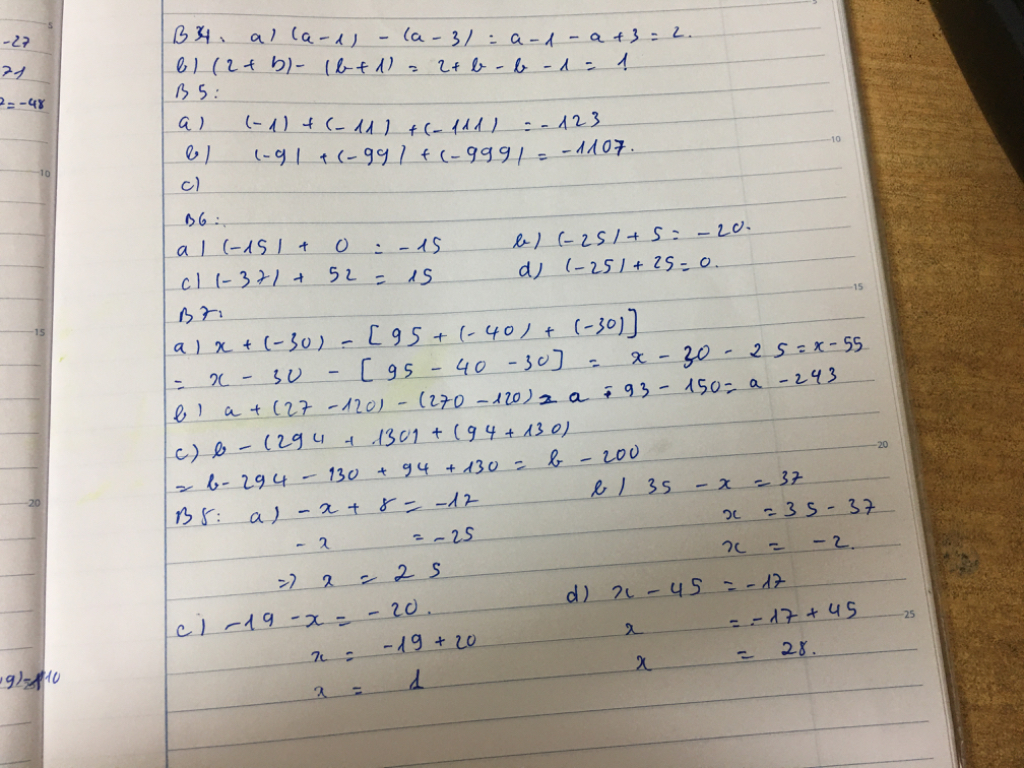 -27
71
2=-48
B4. a) (a-1) - (a-3) = a-1-a+3 = 2.
b) (2+b) - (b+1) = 2+b-b-1 = 1
B5:
a) (-1) + (-11) + (-111) = -123
b) (-9) + (-99) + (-999) = -1107.
c)
B6:
a) (-15) + 0 = -15 b) (-25) + 5 = -20.
c) (-37) + 52 = 15 d) (-25) + 25 = 0.
B7:
a) x + (-30) - [95 + (-40) + (-30)]
= x - 30 - [95 - 40 - 30] = x - 30 - 25 = x - 55
b) a + (27 - 120) - (270 - 120) = a - 93 - 150 = a - 243
c) b - (294 + 130) + (94 + 130)
= b - 294 - 130 + 94 + 130 = b - 200
B8: a) -x + 8 = -17 b) 35 - x = 37
-x = -25 x = 35 - 37
=> x = 25 x = -2.
c) -19 - x = -20. d) x - 45 = -17
x = -19 + 20 x = -17 + 45
x = 1 x = 28.